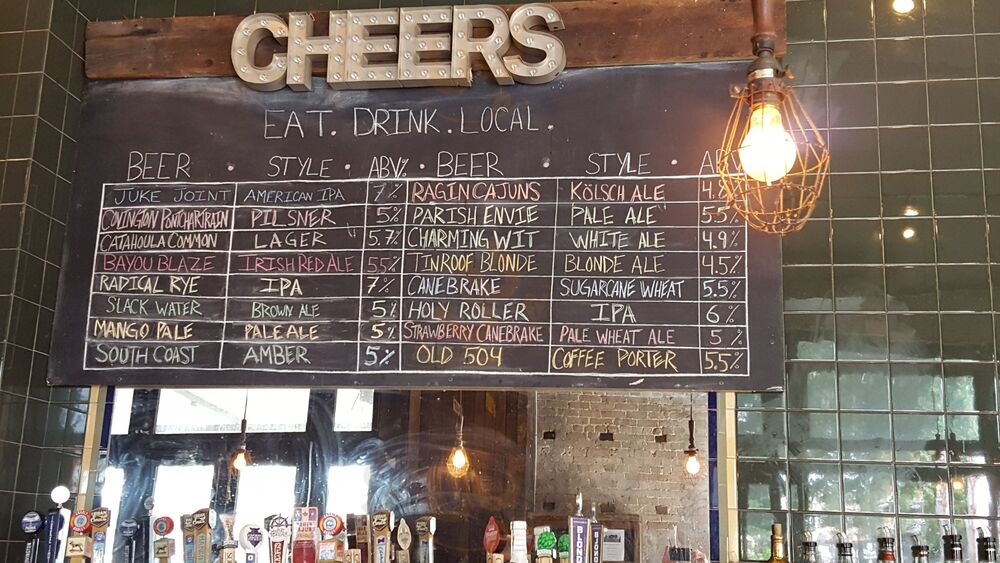 CHEERS
EAT. DRINK. LOCAL.
BEER . STYLE . ABV% . BEER . STYLE . ABV
JUKE JOINT AMERICAN IPA 7% RAGIN CAJUNS KÖLSCH ALE 4.8
COVINGTON PONTCHARTRAIN PILSNER 5% PARISH ENVIE PALE ALE 5.5%
CATAHOULA COMMON LAGER 5.7% CHARMING WIT WHITE ALE 4.9%
BAYOU BLAZE IRISH RED ALE 5.5% TINROOF BLONDE BLONDE ALE 4.5%
RADICAL RYE IPA 7% CANEBRAKE SUGARCANE WHEAT 5.5%
SLACK WATER BROWN ALE 5% HOLY ROLLER IPA 6%
MANGO PALE PALE ALE 5% STRAWBERRY CANEBRAKE PALE WHEAT ALE 5%
SOUTH COAST AMBER 5% OLD 504 COFFEE PORTER 5.5%
BLOND
BJÖN